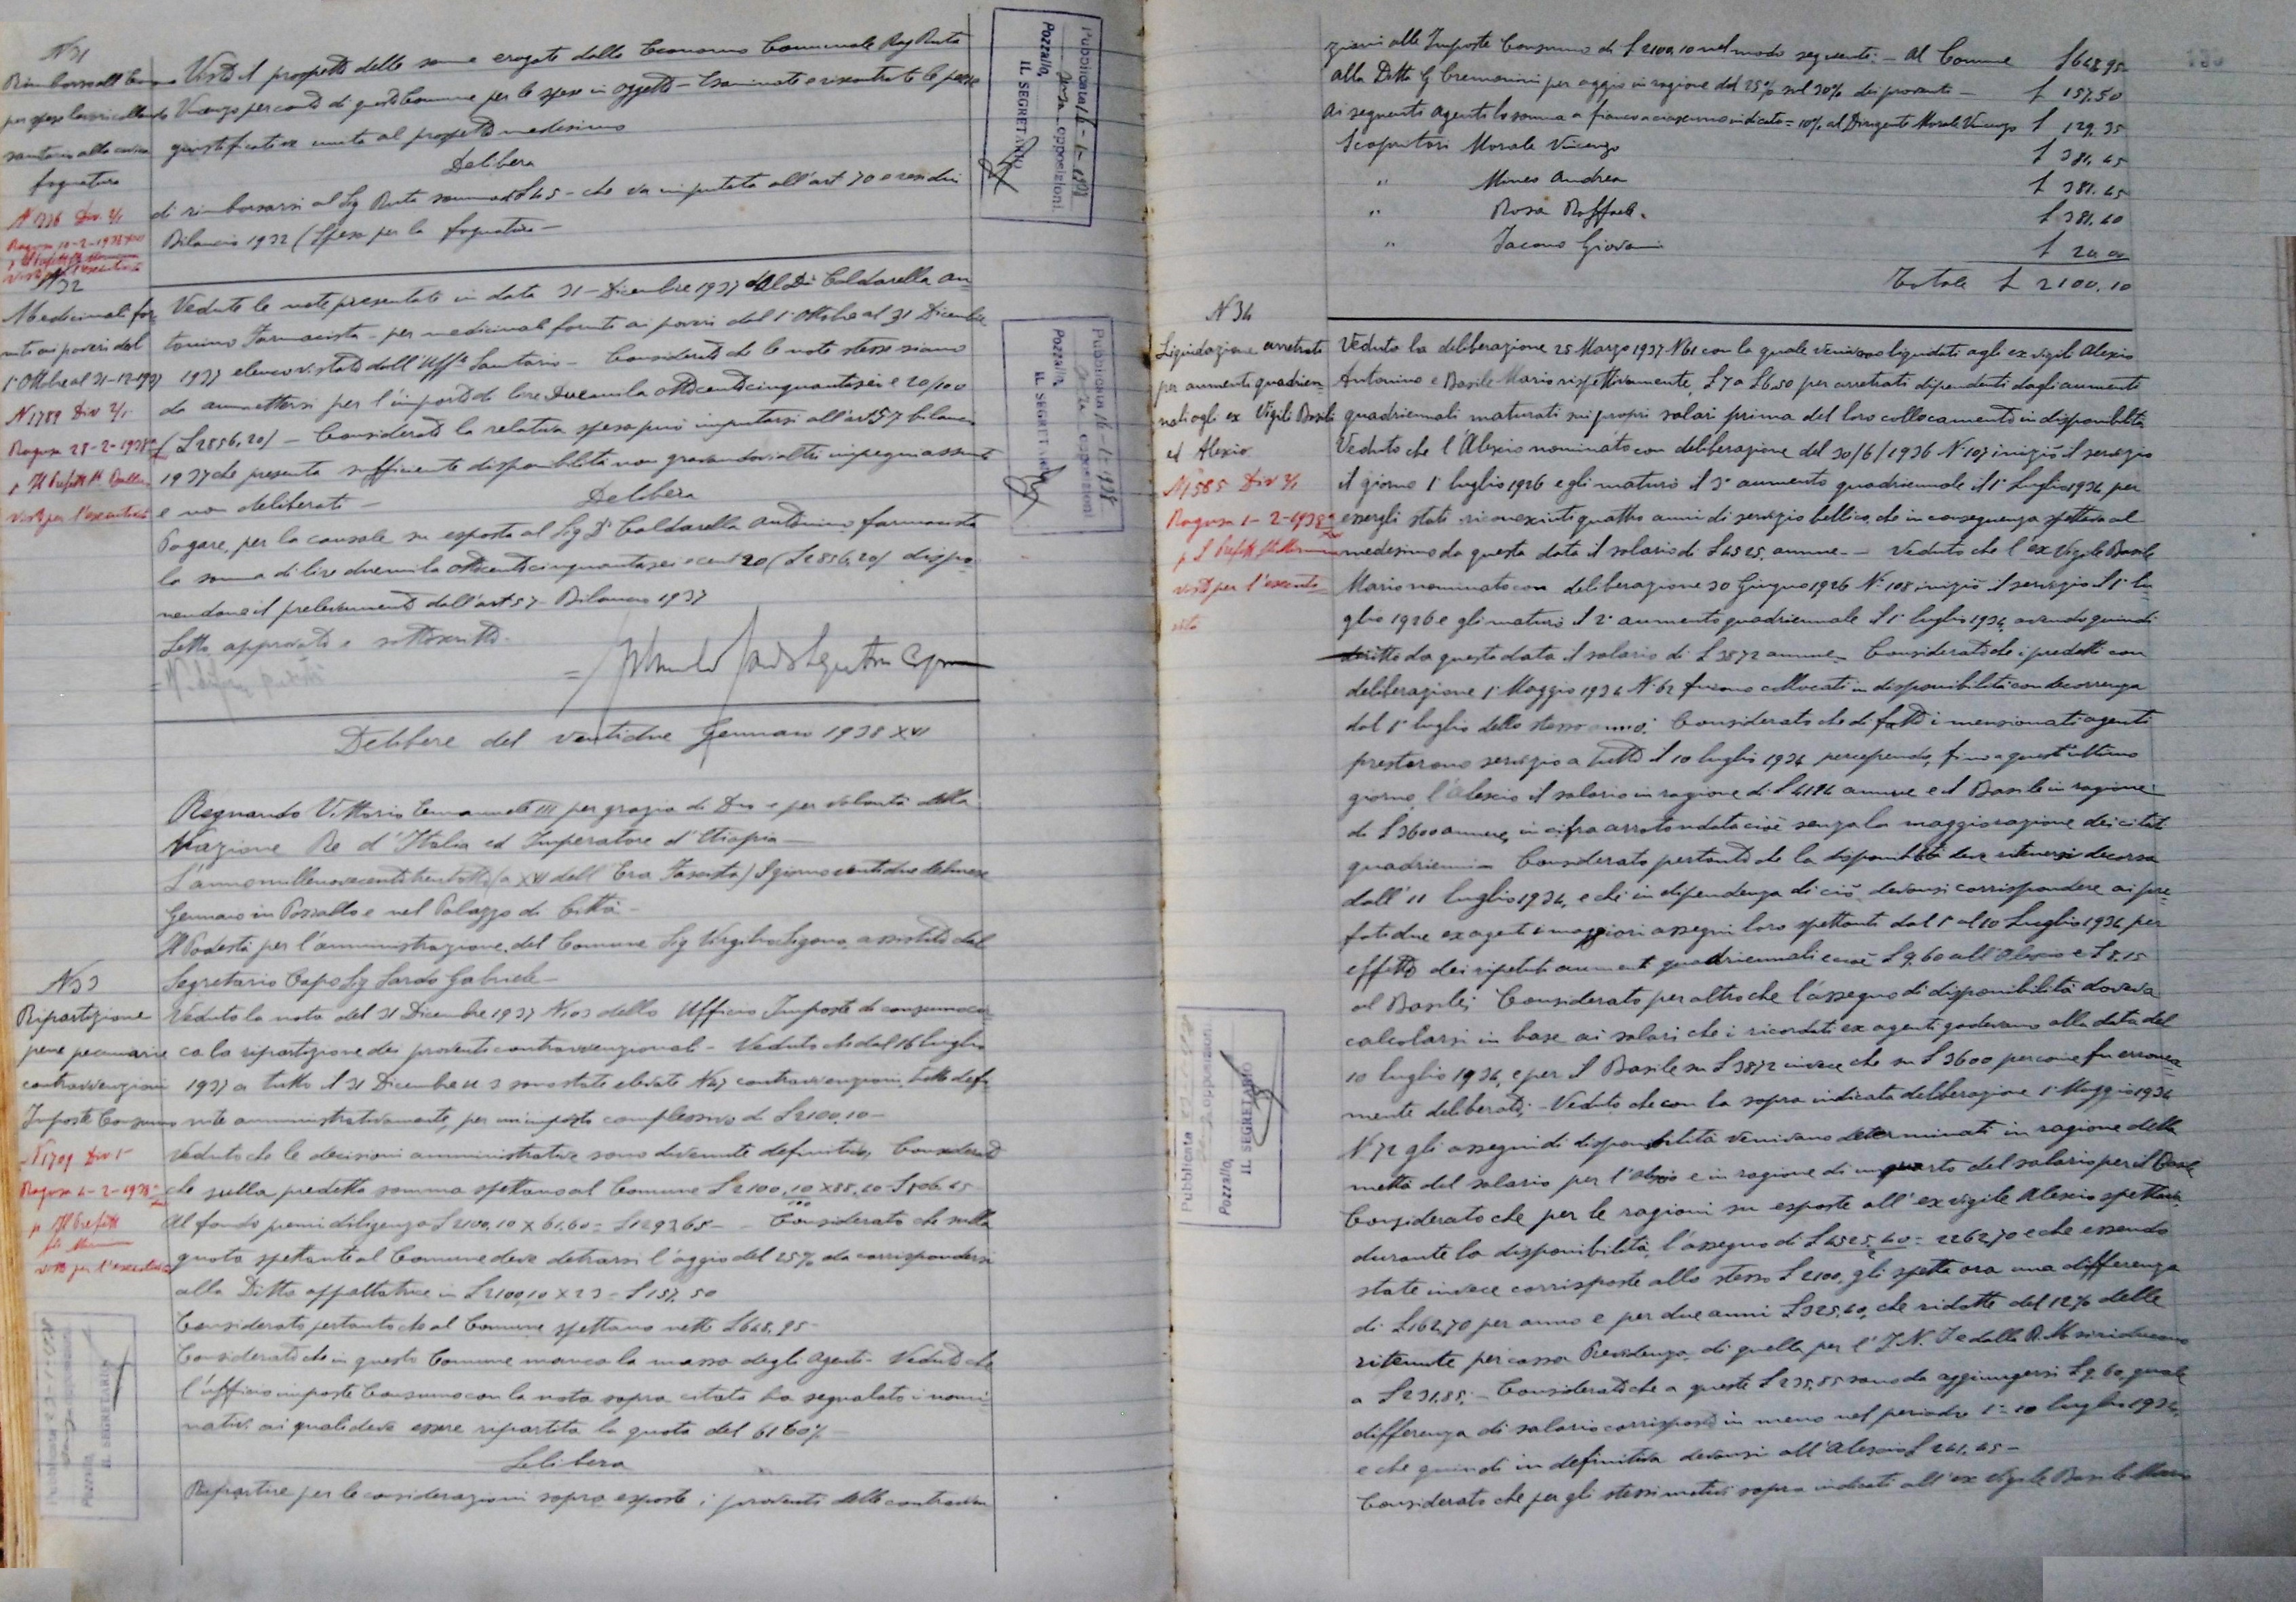 N 31
Rimborso all'Econo
per spese lavori collaudo
sanitario alla civica
fognatura
N 1336 Div. 2/1
Ragusa 10-2-1938 XVI
p Il Prefetto
Visto per l'esecutività
Visto il prospetto delle somme erogate dallo Economo Comunale Rag Ruta
Vincenzo per conto di questo Comune per le spese in oggetto - Esaminate e riscontrate le pezze
giustificative unite al prospetto medesimo
Delibera
di rimborsarsi al Sig Ruta somma di £ 45 - che va imputata all'art 70 e residui
Bilancio 1932 (Spese per la fognatura -
Pubblicata 16-1-1938
senza opposizioni.
Pozzallo,
IL SEGRETARIO
N 32
Medicinali for
niti ai poveri dal
1° Ottobre al 31-12-1937
N 1789 Div 2/1
Ragusa 28-2-1938
p Il Prefetto
visto per l'esecutività
Vedute le note presentate in data 31-Dicembre 1937 dal Dr Caldarella An
tonino Farmacista - per medicinali forniti ai poveri dal 1° Ottobre al 31 Dicembre
1937 elenco vistato dall'Uff° Sanitario - Considerato che le note stesse siano
da ammettersi per l'importo di lire Duemila ottocentocinquantasei e 20/100
(£ 2856,20) - Considerato la relativa spesa può imputarsi all'art 57 bilancio
1937 che presenta sufficiente disponibilità non gravandovi altri impegni assunti
e non deliberati -
Delibera
Pagare, per la causale su esposta al Sig Dr Caldarella Antonino farmacista
la somma di lire duemila ottocentocinquantasei e cent 20 (£ 2856,20) dispo
nendone il prelevamento dall'art 57 - Bilancio 1937
Letto approvato e sottoscritto -
Pubblicata 16-1-1938
senza opposizioni
Pozzallo,
IL SEGRETARIO
Delibere del ventidue Gennaio 1938 XVI
Regnando Vittorio Emanuele III per grazia di Dio e per volontà della
Nazione Re d'Italia ed Imperatore d'Etiopia -
L'anno millenovecentotrentotto (a XVI dell'Era Fascista) Il giorno ventidue del mese
Gennaio in Pozzallo e nel Palazzo di Città -
Il Podestà per l'amministrazione del Comune Sig Virgilio Sigona, assistito dal
Segretario Capo Sig Sardo Gabriele -
N 33
Ripartizione
pene pecuniarie
contravvenzioni
Imposte Consumo
N 1709 Div 1°
Ragusa 4-2-1938
p Il Prefetto
visto per l'esecutività
Veduto la nota del 31 Dicembre 1937 N 103 dello Ufficio Imposte di consumo cir
ca la ripartizione dei proventi contravvenzionali - Veduto che dal 16 luglio
1937 a tutto il 31 Dicembre u s sono state elevate N 47 contravvenzioni, tutte defi
nite amministrativamente, per un importo complessivo di £ 2100,10 -
Veduto che le decisioni amministrative sono divenute definitive, Considerato
che sulla predetta somma spettano al Comune £ 2100,10 x
Al fondo premi diligenza £ 2100,10 x 61,60 = £ 1293,65 - Considerato che sulla
quota spettante al Comune deve detrarsi l'aggio del 25% da corrispondersi
alla Ditta appaltatrice in £ 2100,10 x = £ 157,50
Considerato pertanto che al Comune spettano nette £ 648,95 -
Considerato che in questo Comune manca la massa degli Agenti - Veduto che
l'ufficio imposte Consumo con la nota sopra citata ha segnalato i nomi
nativi ai quali deve essere ripartita la quota del 61 60%
Delibera
Ripartire per le considerazioni sopra esposte i proventi delle contravven
Pubblicata 23-1-1938
senza opposizioni
Pozzallo
IL SEGRETARIO
zioni alle Imposte Consumo di £ 2100,10 nel modo seguente: - Al Comune £ 648,95
alla Ditta G Cremonini per aggio in ragione del 25% sul 30% dei proventi - £ 157.50
Ai seguenti Agenti la somma a fianco a ciascuno indicata = 10% al Dirigente Morale Vincenzo £ 129,35
Scopritori Morale Vincenzo £ 381,45
" Mineo Andrea £ 381.45
" Rosa Raffaele £ 381,40
" Iacono Giovanni £ 20,00
Totale £ 2100,10
N 34
Liquidazione arretrati
per aumenti quadrien
nali agli ex Vigili Basile
ed Alescio
N 1585 Div 2/1
Ragusa 1-2-1938
p Il Prefetto
visto per l'esecuti
vità
Veduto la deliberazione 25 Marzo 1937 N 61 con la quale venivano liquidati agli ex vigili Alescio
Antonino e Basile Mario rispettivamente, £ 7 a £ 6,50 per arretrati dipendenti dagli aumenti
quadriennali maturati sui propri salari prima del loro collocamento in disponibilità
Veduto che l'Alescio nominato con deliberazione del 30/6/1936 N 107 iniziò il servizio
il giorno 1° luglio 1926 e gli maturò il 3° aumento quadriennale il 1° Luglio 1934 per
essergli stati riconosciuti quattro anni di servizio bellico, che in conseguenza spettava al
medesimo da questa data il salario di £ 4525 annue - Veduto che l'ex Vigile Basile
Mario nominato con deliberazione 30 Giugno 1926 N° 108 iniziò il servizio il 1° lu
glio 1926 e gli maturò il 2° aumento quadriennale il 1° luglio 1934, avendo quindi
diritto da questa data il salario di £ 3872 annue - Considerato che i predetti con
deliberazione 1° Maggio 1934 N° 62 furono collocati in disponibilità con decorrenza
dal 1° luglio dello stesso anno. Considerato che di fatto i menzionati agenti
prestarono servizio a tutto il 10 luglio 1934 percependo, fino a quest'ultimo
giorno, l'Alescio il salario in ragione di £ 4194 annue e il Basile in ragione
di £ 3600 annue, in cifra arrotondata cioè senza la maggiorazione dei citati
quadrienni - Considerato pertanto che la disponibilità deve ritenersi decorsa
dall'11 luglio 1934, e che in dipendenza di ciò devonsi corrispondere ai pre
fati due ex agenti i maggiori assegni loro spettanti dal 1° al 10 Luglio 1934 per
effetto dei ripetuti aumenti quadriennali e cioè £ 9,60 all'Alescio e £ 8,15
al Basile; Considerato per altro che l'assegno di disponibilità doveva
calcolarsi in base ai salari che i ricordati ex agenti godevano alla data del
10 luglio 1934, e per il Basile su £ 3872 invece che su £ 3600 per come fu erronea
mente deliberato; - Veduto che con la sopra indicata deliberazione 1° Maggio 1934
N 72 gli assegni di disponibilità venivano determinati in ragione della
metà del salario per l'Alescio e in ragione di un quarto del salario per il Basile
Considerato che per le ragioni su esposte all'ex vigile Alescio spettava
durante la disponibilità, l'assegno di £ 4525,40 = 2262,70 e che essendo
state invece corrisposte allo stesso £ 2100, gli spetta ora una differenza
di £ 162,70 per anno e per due anni £ 325,40, che ridotte del 12% delle
ritenute per cassa Previdenza, di quella per l'I.N.F. e dalla R.M. si riducono
a £ 231,85; - Considerato che a queste £ 231,85 sono da aggiungersi £ 9,60, quale
differenza di salario corrisposto in meno nel periodo 1° - 10 luglio 1934,
e che quindi in definitiva devonsi all'Alescio £ 241,45 -
Considerato che per gli stessi motivi sopra indicati all'ex vigile Basile Mario
Pubblicata
opposizioni
Pozzallo,
IL SEGRETARIO